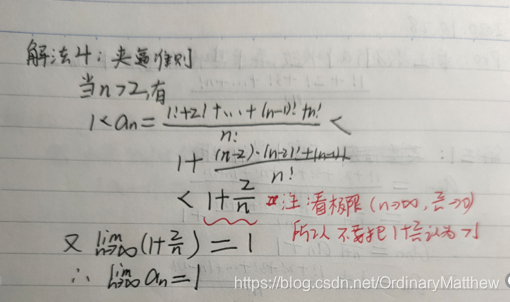 解法4：夹逼准则
当n>2,有
1<an=(1!+2!+...+(n-1)!+n!)/n!<
1+((n-2)·(n-2)!+(n-1)!)/n!
<1+2/n 注：看极限(n→∞,2/n→0)
所以不要把1+2/n认为>1
又 lim n→∞ (1+2/n)=1
∴ lim n→∞ an=1
https://blog.csdn.net/OrdinaryMatthew